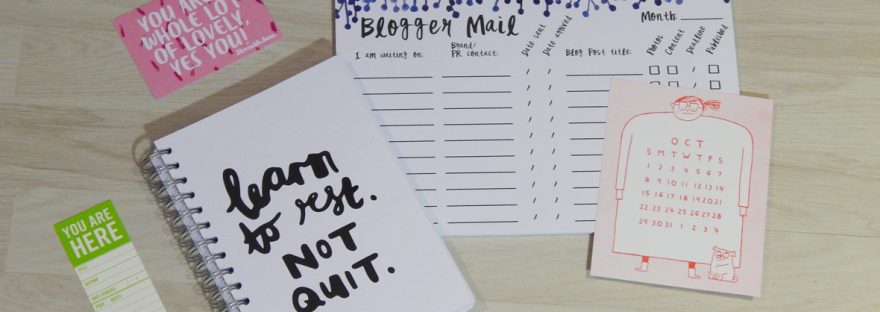 YOU ARE A
WHOLE LOT
OF LOVELY,
YES YOU!
Blogger Mail
Month:
I am waiting on:
Brand/
PR contact:
Date sent
Date arrived
Blog Post title:
Photos
Content
Deadline
Published
learn
to rest.
NOT
QUIT.
YOU ARE
HERE
TITLE
AUTHOR
OCT
S M T W T F S
1 2 3 4 5 6 7
8 9 10 11 12 13 14
15 16 17 18 19 20 21
22 23 24 25 26 27 28
29 30 31 1 2 3 4